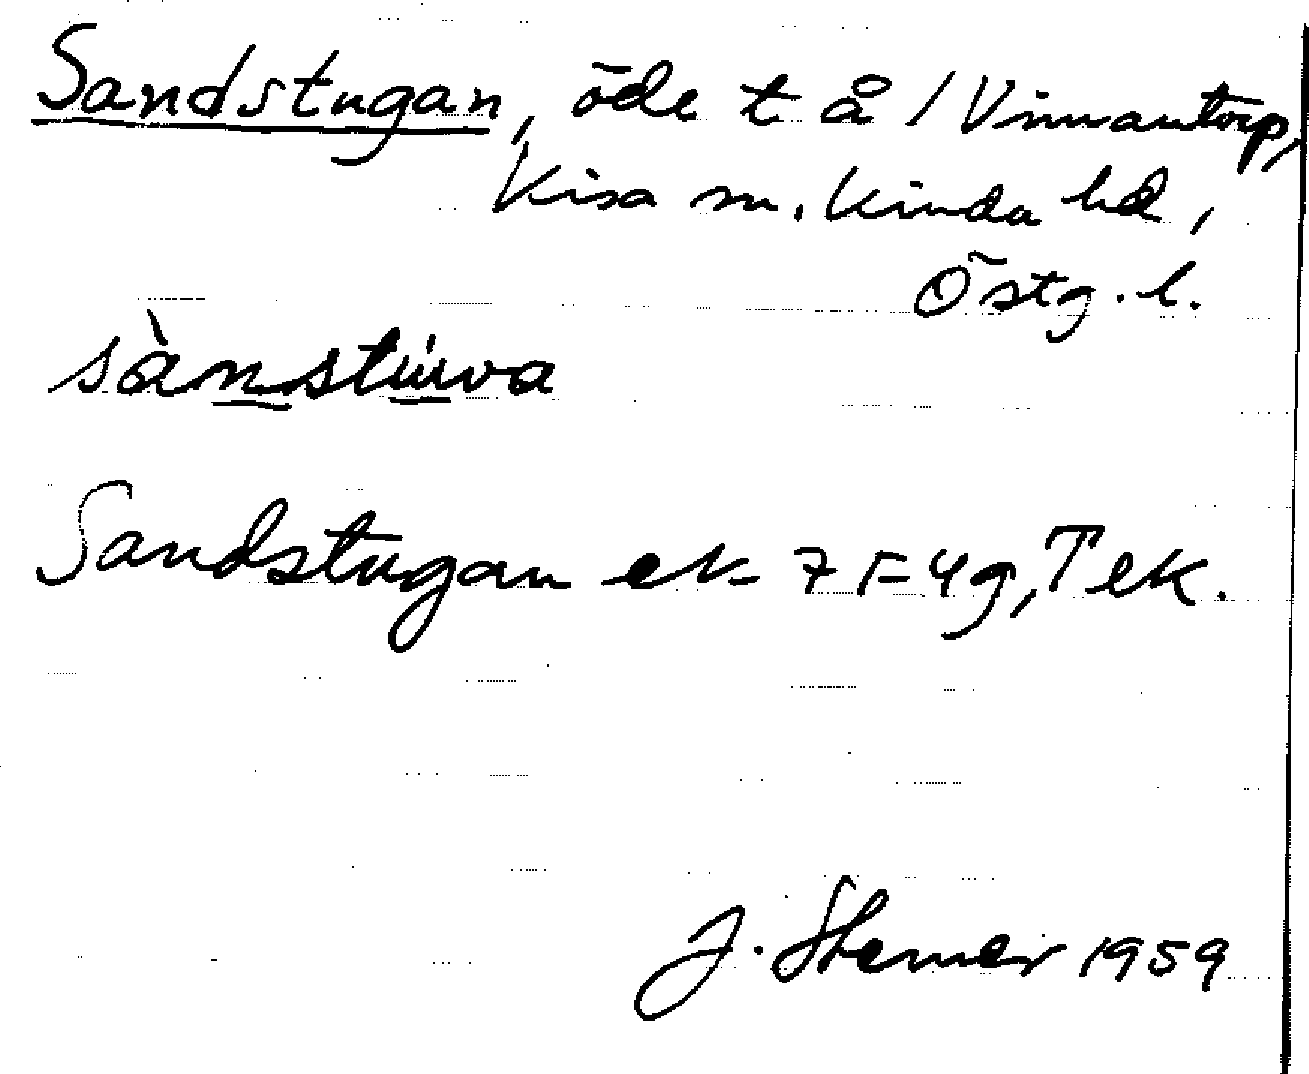 Sandstugan, öde t å 1 Vinnantorp,
Kisa sn. Kinda hd,
Östg. l.
sànstúwa
Sandstugan ek 7F4g, Tek.
J. 1959